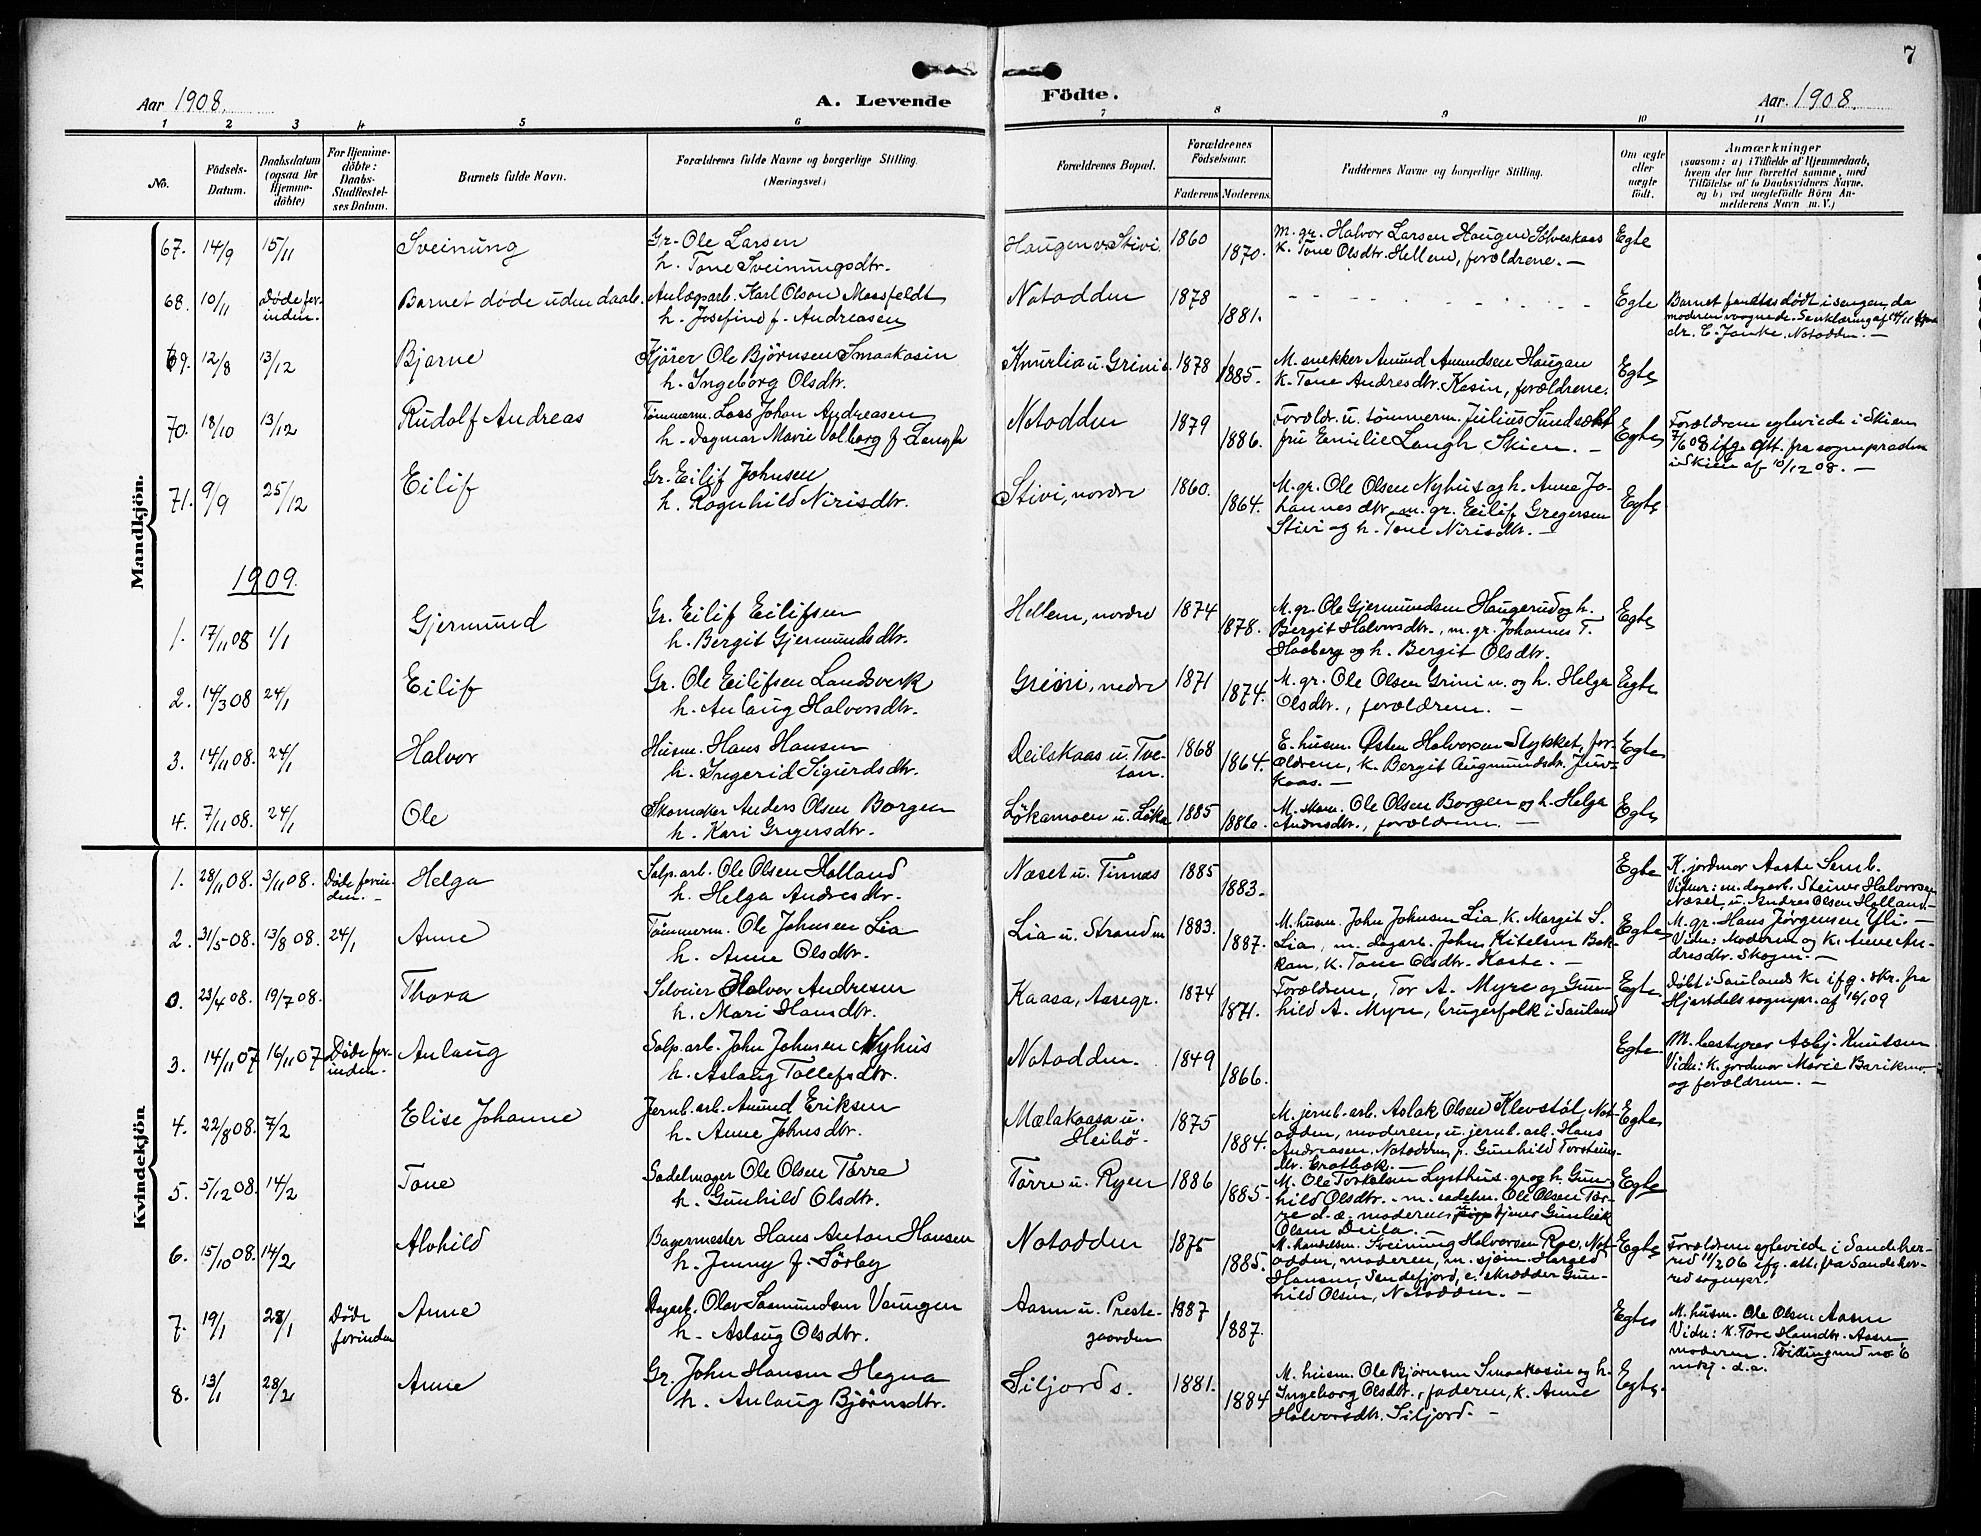 7
Aar 1908.
A. Levende Födte.
Aar. 1908.
1 2 3 4 5 6 7 8 9 10 11
No.
Födsels-Datum.
Daabsdatum (ogsaa for Hjemme-döbte)
For Hjemme-döbte: Daabs-Stadfæstel-ses Datum.
Barnets fulde Navn.
Forældrenes fulde Navne og borgerlige Stilling.
(Næringsvei.)
Forældrenes Bopæl.
Forældrenes Födselsaar.
Faderens Moderens
Faddernes Navne og borgerlige Stilling.
Om ægte eller uægte födt.
Anmærkninger
(saasom: a) i Tilfælde af Hjemmedaab,
hvem der har forrettet samme, med
Tilföielse af to Daabsvidners Navne,
og b) ved uægtefödte Börn An-
melderens Navn m. V.)
Mandkjön.
67. 14/9 15/11 Sveinung Gr. Ole Larsen Haugen v. Stivi. 1860 M. gr. Halvor Larsen Haugen, Egte
h. Tone Sveinungsdtr. 1870. k. Tone Olsdtr. Hellem, forældrene. —
68. 10/11 Døde for- Barnet døde uden daab. Anlægsarb. Karl Olson Mossfeldt Notodden 1878 Egte Barnet fandtes dødt i sengen, da
inden. h. Josefine f. Andreasen 1881. moderen vaagnede.
dr. C. Janke, Notodden. —
69. 12/8 13/12 Bjarne Kjörer Ole Björnsen Smaakasin Knurlia u. Grini 1878 M. snekker Amund Amundsen Haugan Egte
h. Ingeborg Olsdtr. 1885. k. Tone Andresdtr. Kasin, forældrene.
70. 18/10 13/12 Rudolf Andreas Tømmerm. Lars Johan Andreasen Notodden 1879 Forældr. u. tømmerm. Julius Sundsæht Egte Forældrene egteviede i Skien
h. Dagmar Marie Valborg f. Langh 1886. fru Emilie Langh Skien. — 7/6 08 ifg. att. fra sognepræsten
i Skien af 10/12 08. —
71. 9/9 25/12 Eilif Gr. Eilif Johnsen Stivi, nordre 1860. M. gr. Ole Olsen Nyhus og h. Anne Jo- Egte
h. Ragnhild Nirisdtr. 1864. hannesdtr. m. gr. Eilif Gregersen
Stivi og h. Tone Nirisdtr. —
1909.
1. 17/11 08 1/1 Gjermund Gr. Eilif Eilifsen Hellem, nordre 1874 M. gr. Ole Gjermundsen Haugerud og h. Egte
h. Bergit Gjermundsdtr. 1878. Bergit Halvorsdtr., m. gr. Johannes T.
Haaberg og h. Bergit Olsdtr.
2. 14/3 08 24/1 Eilif Gr. Ole Eilifsen Landsverk Grini, nedre 1871 M. gr. Ole Olsen Grini n. og h. Helga Egte
h. Anlaug Halvorsdtr. 1874. Olsdtr., forældrene. —
3. 14/11 08. 24/1 Halvor Husm. Hans Hansen Deilskaas u. Tve- 1868 E. husm. Østen Halvorsen Stykket, for- Egte
h. Ingerid Sigurdsdtr. ten. 1864. ældrene, k. Bergit Augmundsdtr. Juv-
kaas. —
4. 7/11 08. 24/1 Ole Skomaker Anders Olsen Borgen Løkamoen u. Løka 1885 M. skom. Ole Olsen Borgen og h. Helga Egte
h. Kari Gregersdtr. 1886. Andresdtr., forældrene. —
Kvindekjön
1. 28/11 08. 3/11 08. Døde forin- Helga Salp. arb. Ole Olsen Holland Næset u. Tinnæs 1885 Egte K. jordmor Aaste Semb.
den. — h. Helga Andresdtr. 1883. Vidner: m. dagarb. Steinar Halvorsen
Næset, u. Andres Olsen Holland. —
2. 31/5-08. 13/8 08. 24/1 Anne Tømmerm. Ole Johnsen Lia Lia u. Strand 1883. M. husm. John Johnsen Lia, k. Margit S. Egte M. gr. Hans Jørgensen Yli. —
h. Anne Olsdtr. 1887. Lia, m. dagarb. John Kitelsen Bak- Vidn: Moderen og k. Anne An-
kan, k. Tone Olsdtr. Haste. — dresdtr. Skogen. —
0. 23/4 08. 19/7 08. Thora Selveier Halvor Andresen Kaasa, Aasegr. 1874 Forældrene, Tor A. Myre og Gun- Egte Døbt i Sauland k. ifg. skr. fra
h. Mari Hansdtr. 1871. hild A. Myre, brugerfolk i Sauland Hjartdals sognepr. af 16/1 09
3. 14/11 07 16/11 07 Døde for- Anlaug Salp. arb. John Johnsen Nyhus Notodden. 1849 Egte M. bestyrer Asbj. Knutsen
inden. h. Aslaug Tollefsdtr. 1866. Vidn: k. jordmor Marie Barikmo
og forældrene. —
4. 22/8 08. 7/2 Elise Johanne Jernb. arb. Amund Eriksen Mælakaasa u. 1875 M. jernb. arb. Aslak Olsen Klevstöl, Not- Egte
h. Anne Johnsdtr. Heibö. 1884. odden, moderen, u. jernb. arb. Hans
Andreasen, Notodden, p. Gunhild Torsteins-
dtr. Bratbæk. —
5. 5/12 08. 14/2 Tone Sadelmager Ole Olsen Tørre Tørre u. Ryen 1886 M. Ole Torkelsen Lysthus gr. og h. Gun- Egte
h. Gunhild Olsdtr. 1885. hild Olsdtr. - m. sadelm. Ole Olsen Tør-
re d. æ. moderen, tjener Gunleik
Olsen Deila. —
6. 15/10 08. 14/2 Alvhild Bagermester Hans Anton Hansen Notodden 1875 M. handelsm. Sveinung Halvorsen Roe, Not- Egte Forældrene egteviede i Sandeher-
h. Jenny f. Sörby 1885. odden, moderen, m. sjöm. Harald red 11/2 06 ifg. att. fra Sandeher-
Hansen, Sandefjord, e. skrædder Gun- red sognepr.
hild Olsen, Notodden. —
7. 19/1 28/1 Døde Anne Dagarb. Olav Samundsen Vaangen Aasen u. Preste- 1887 Egte M. husm. Ole Olsen Aasen
forinden h. Aslaug Olsdtr. gaarden 1887. Vidn: k. Tore Hansdtr. Aasen
moderen. Tvilling med no. 6
mkj. d. a.
8. 13/1 28/2 Anne Gr. John Hansen Hegna Siljords. 1881. M. husm. Ole Björnsen Smaakasin og h. Egte.
h. Anlaug Björnsdtr. 1884 Ingeborg Olsdtr., faderen, k. Anne
Halvorsdtr. Siljord. —